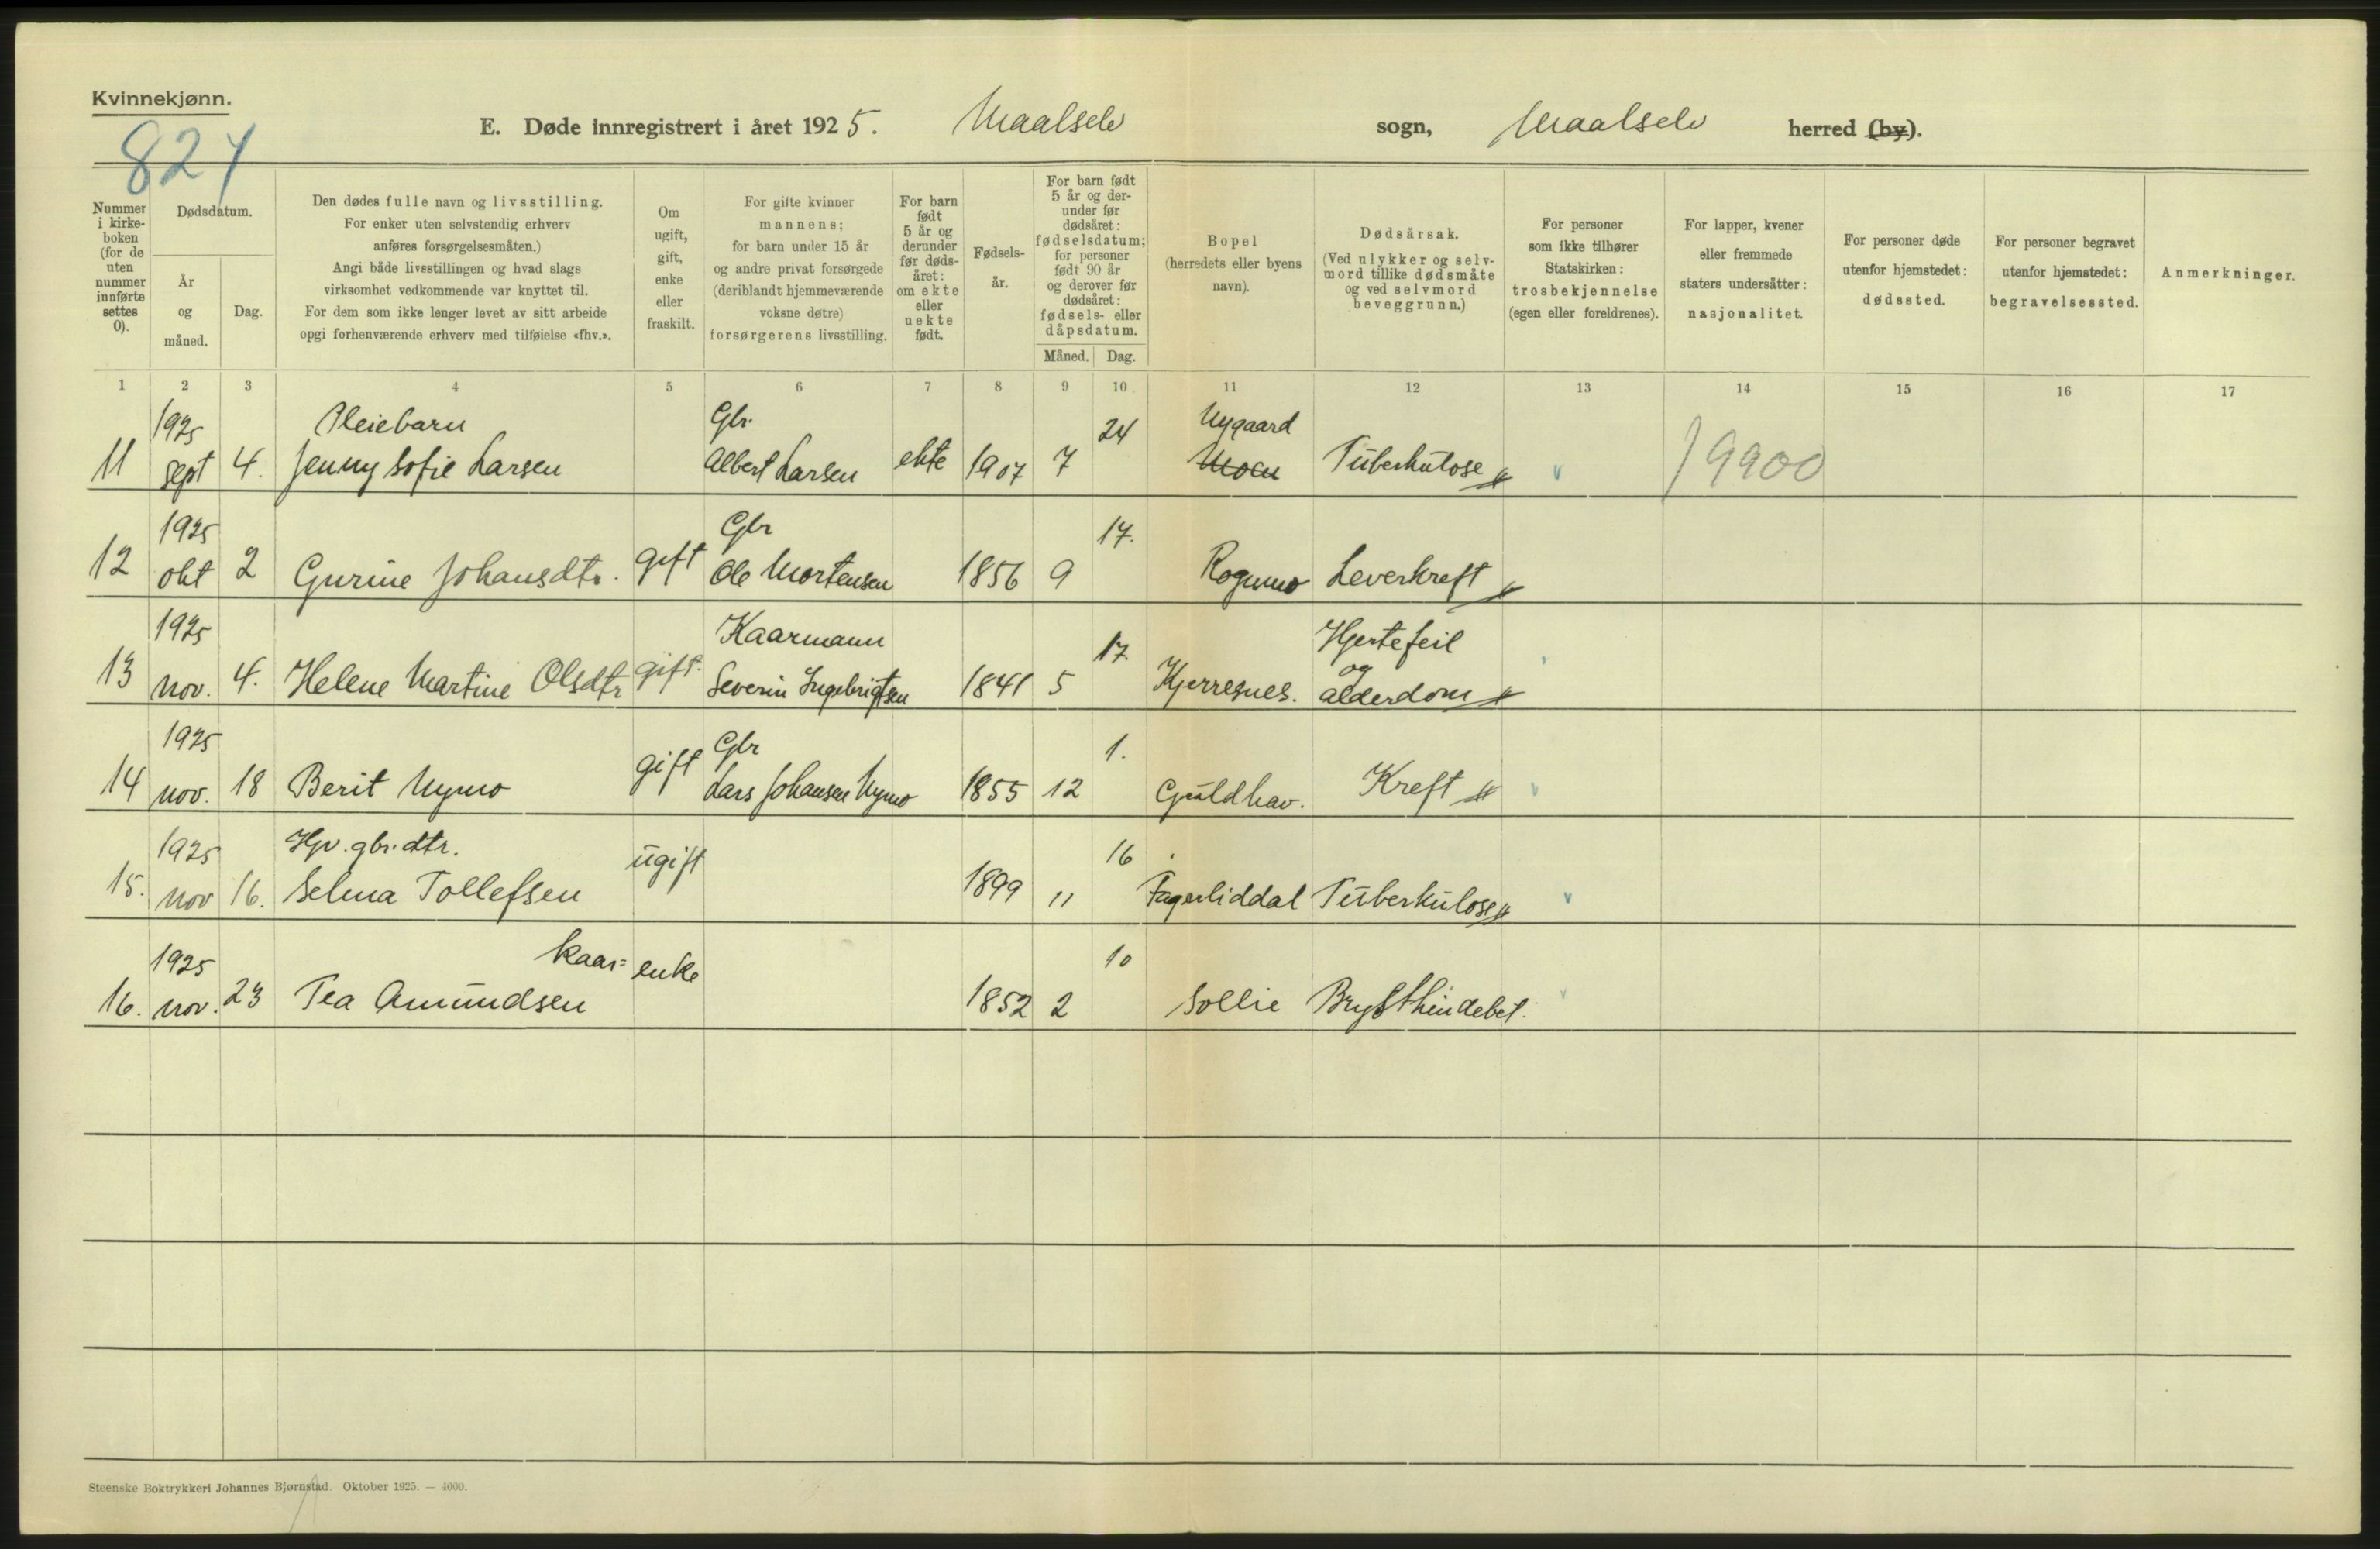 Kvinnekjønn.
824
E. Døde innregistrert i året 1925. Maalselv sogn, Maalselv herred (by).
Nummer i kirke-boken (for de uten nummer innførte settes 0).
Dødsdatum.
År og måned.
Dag.
Den dødes fulle navn og livsstilling.
For enker uten selvstendig erhverv
anføres forsørgelsesmåten.)
Angi både livsstillingen og hvad slags
virksomhet vedkommende var knyttet til.
For dem som ikke lenger levet av sitt arbeide
opgi forhenværende erhverv med tilføielse «fhv.».
Om ugift, gift, enke eller fraskilt.
For gifte kvinner
mannens;
for barn under 15 år
og andre privat forsørgede
(deriblandt hjemmeværende
voksne døtre)
forsørgerens livsstilling.
For barn født 5 år og derunder før døds-året: om ekte eller uekte født.
Fødsels-år.
For barn født 5 år og der-under før dødsåret: fødselsdatum; for personer født 90 år og derover før dødsåret: fødsels- eller dåpsdatum.
Måned. Dag.
Bopel
(herredets eller byens
navn).
Dødsårsak.
(Ved ulykker og selv-
mord tillike dødsmåte
og ved selvmord
beveggrunn.)
For personer
som ikke tilhører
Statskirken:
trosbekjennelse
(egen eller foreldrenes).
For lapper, kvener
eller fremmede
staters undersåtter:
nasjonalitet.
For personer døde
utenfor hjemstedet:
dødssted.
For personer begravet
utenfor hjemstedet:
begravelsessted.
Anmerkninger.
1 2 3 4 5 6 7 8 9 10 11 12 13 14 15 16 17
1925 Pleiebarn Gbr. 24 Nygaard
11 sept 4. Jenny Sofie Larsen Albert Larsen ekte 1907 7 Moen Tuberkulose 19900
1925 Gbr 17.
12 okt 2 Gurine Johansdtr. gift Ole Mortensen 1856 9 Rognmo Leverkreft
1925 Kaarmann 17. Hjertefeil
og
13 nov. 4. Helene Martine Olsdtr gift. Severin Ingebrigtsen 1841 5 Kjerresnes. alderdom
1925 Gbr 1.
14 nov. 18 Berit Nymo gift Lars Johansen Nymo 1855 12 Guldhav. Kreft
1925 Hjv. gbr. dtr. 16
15. nov 16. Selma Tollefsen ugift 1899 11 Fagerliddal Tuberkulose
1925 kaar= enke 10
16. nov. 23 Tea Amundsen 1852 2 Sollie Brysthindebet.
Steenske Boktrykkeri Johannes Bjørnstad. Oktober 1925. — 4000.